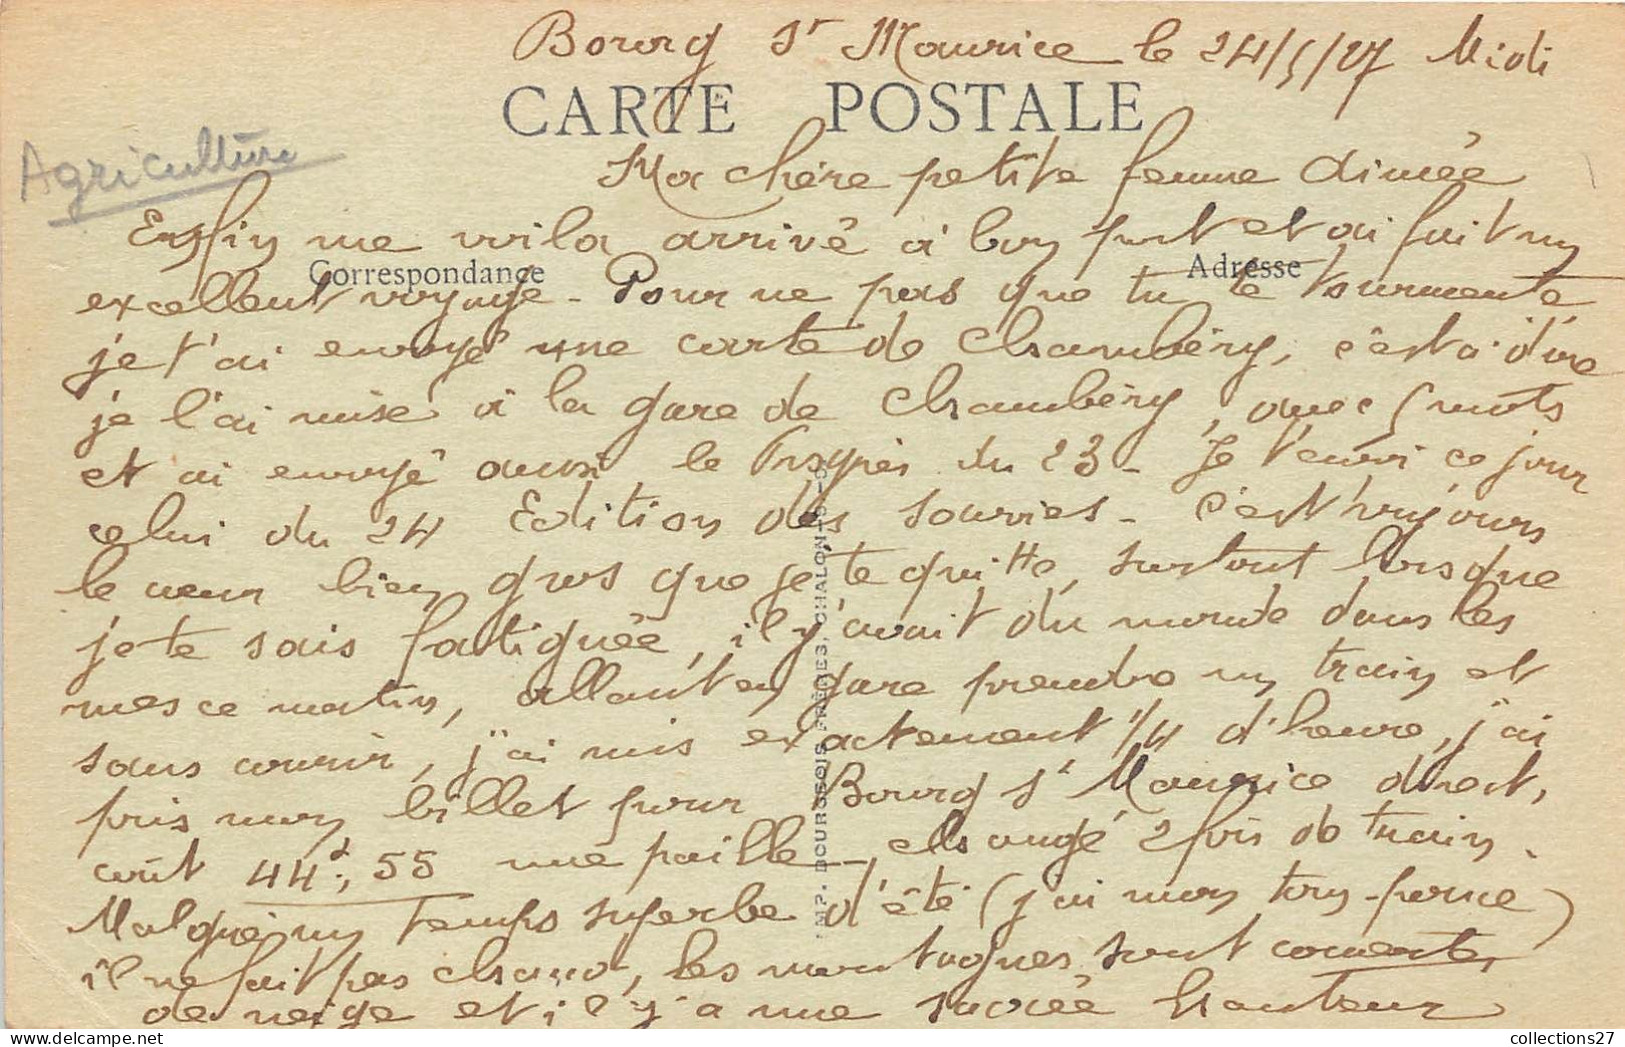 Bourg St Maurice le 24/5/27 Midi
CARTE POSTALE
Agriculture
Ma chère petite femme aimée
Enfin me voila arrivé à bon port et ai fait un
Correspondance
Adresse
excellent voyage - Pour ne pas que tu te tourmente,
je t'ai envoyé une carte de Chambéry, c'est a dire
je l'ai mise à la gare de Chambéry, avec 5 mots
et ai envoyé aussi le Progrès du 23 - Je t'envoi ce jour
celui du 24 Edition des souries - C'est toujours
le cœur bien gros que je te quitte, surtout lorsque
je te sais fatiguée, il y avait du monde dans les
rues ce matin, allant en gare prendre un train et
sans courir, j'ai mis exactement 1/4 d'heure, j'ai
pris mon billet pour Bourg St Maurice direct,
coût 44f,55 une paille -, changé 2 fois de train.
Malgré un temps superbe d'été (j'ai mon )
il ne fait pas chaud, les montagnes sont couvertes
de neige et il y a une sacrée hauteur
IMP. BOURGEOIS FRÈRES, CHALON-S-S
collections27